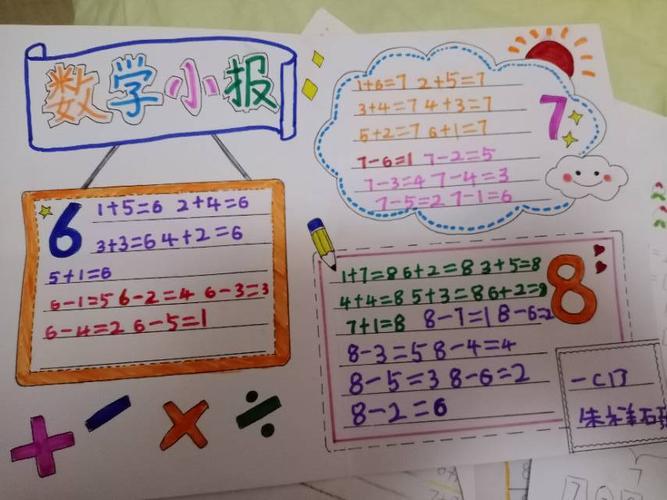 数学小报
6
1+5=6 2+4=6
3+3=6 4+2=6
5+1=6
6-1=5 6-2=4 6-3=3
6-4=2 6-5=1
7
1+6=7 2+5=7
3+4=7 4+3=7
5+2=7 6+1=7
7-6=1 7-2=5
7-3=4 7-4=3
7-5=2 7-1=6
8
1+7=8 6+2=8 3+5=8
4+4=8 5+3=8 6+2=8
7+1=8 8-7=1 8-6=2
8-3=5 8-4=4
8-5=3 8-6=2
8-2=6
一(1)
朱
+ - × ÷